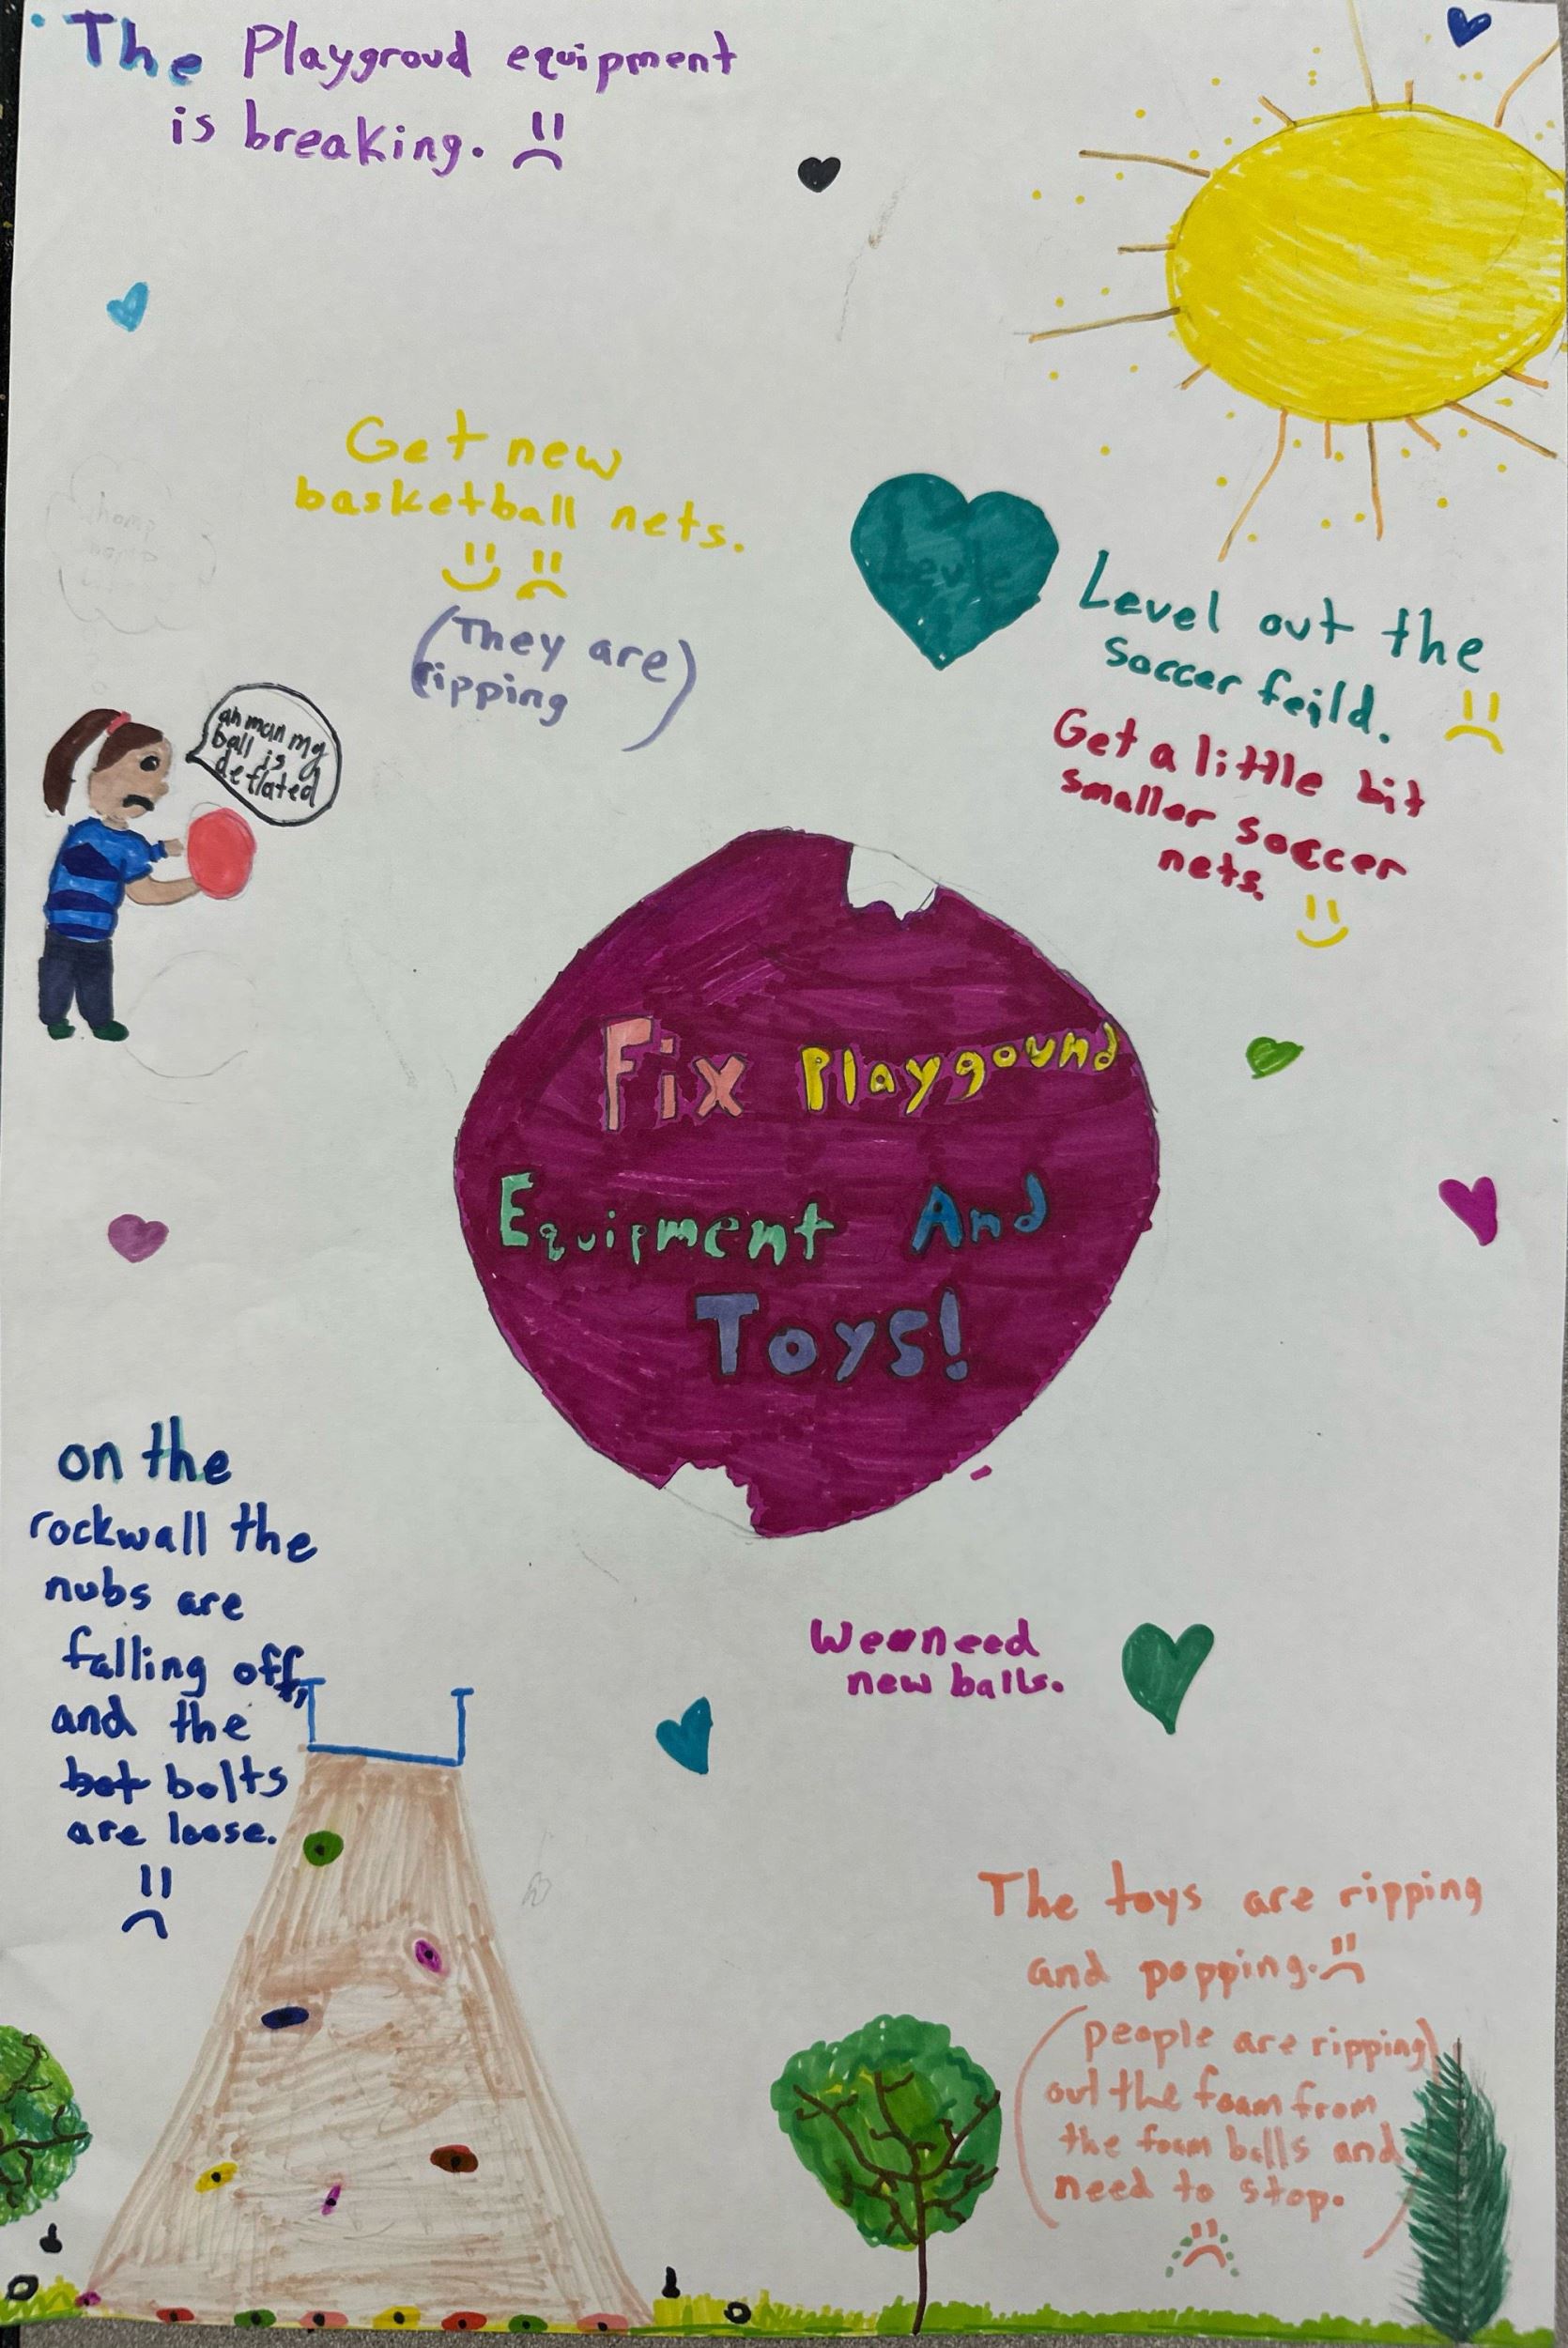 The Playgroud equipment
is breaking.
Get new
basketball nets.
(They are)
ripping
Level out the
soccer feild.
Get a little bit
smaller soccer
nets.
ah man my
ball is
deflated
Fix Playgound
Equipment And
Toys!
on the
rockwall the
nubs are
falling off,
and the
bot bolts
are loose.
We need
new balls.
The toys are ripping
and popping.
(people are ripping
out the foam from
the foam balls and
need to stop.)